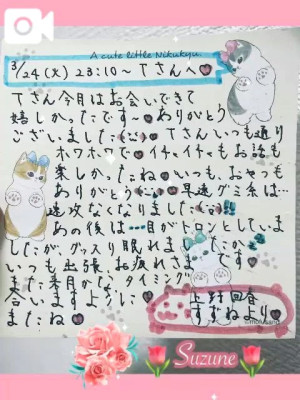 A cute little Nikukyu.
3/24(火) 23:10～Tさんへ
Tさん今月はお会いできて
嬉しかったです～ありがとう
ございました Tさんいつも通り
ホワホワで イチャイチャもお話も
楽しかったね いつも、おやつも
ありがとう 早速グミ系は…
速攻なくなりました
あの後は…目がトロンとしていま
したが、グッスリ眠れましたか
いつも出張、お疲れさまです
また来月かな、タイミング
合いますように
またね
回春
すずねより
©mofusand
Suzune